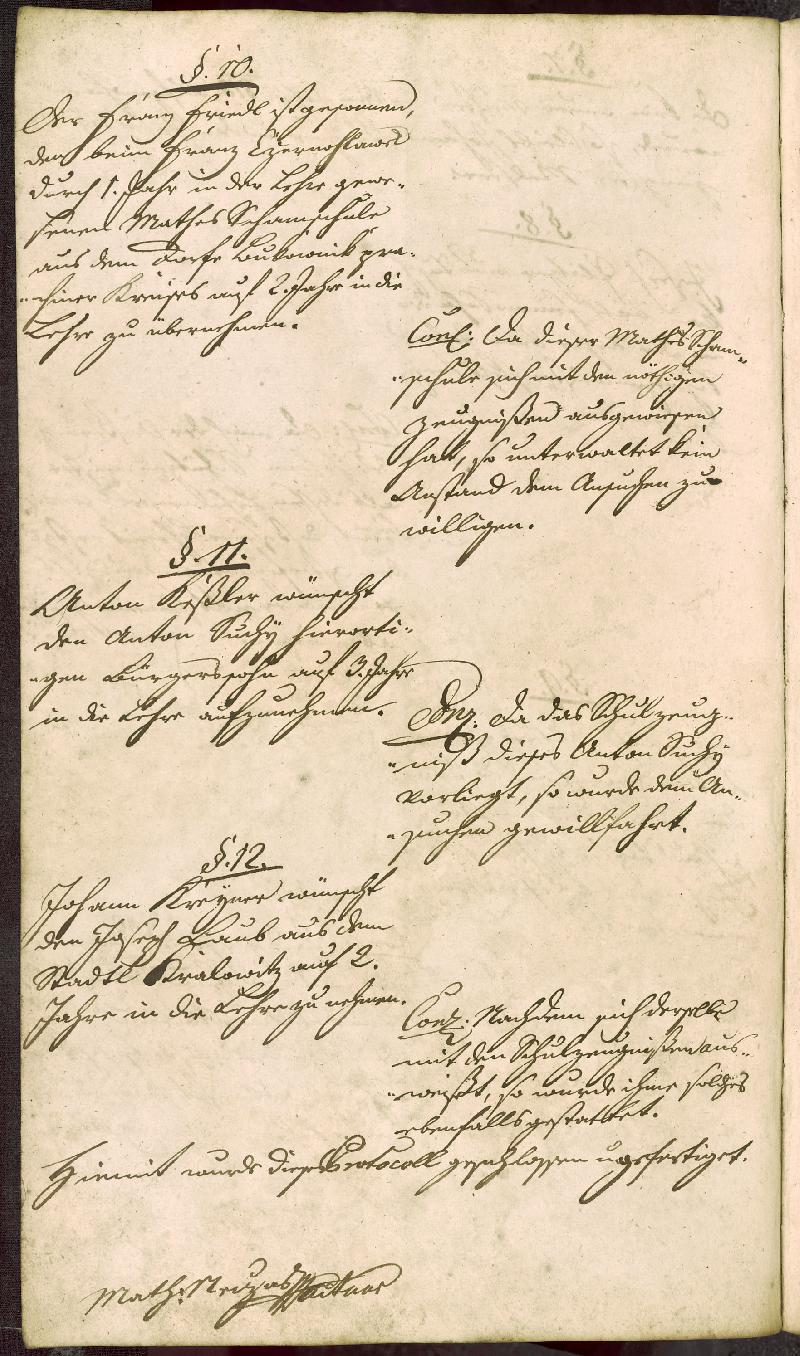 §. 10.
Der Franz Friedl ist gesonnen,
den beim Franz Czernohlawek
durch 1. Jahr in der Lehre gewe-
senen Mathes Schamschule
aus dem Dorfe Bukownik pra-
-chiner Kreises auf 2 Jahre in die
Lehre zu übernehmen.
Concl: Da dieser Mathes Scham-
-schule sich mit den nöthigen
Zeugnißen ausgewiesen
hat, so unterwaltet kein
Anstand dem Ansuchen zu
willigen.
§. 11.
Anton Keßler wünscht
den Anton Suchy hierorti-
-gen Bürgerssohn auf 3. Jahre
in die Lehre aufzunehmen.
Conz. Da das Schulzeug-
-niß dieses Anton Suchy
vorliegt, so wurde dem An-
-suchen gewillfahrt.
§. 12.
Johann Kreyner wünscht
den Joseph Taub aus dem
Stadtl Kralowitz auf 2.
Jahre in die Lehre zu nehmen.
Conz. Nachdem sich derselbe
mit den Schulzeugnißen aus-
-weißt, so wurde ihme solches
ebenfalls gestattet.
Hiemit wurde dieses Protocoll geschlossen u gefertiget.
Math: